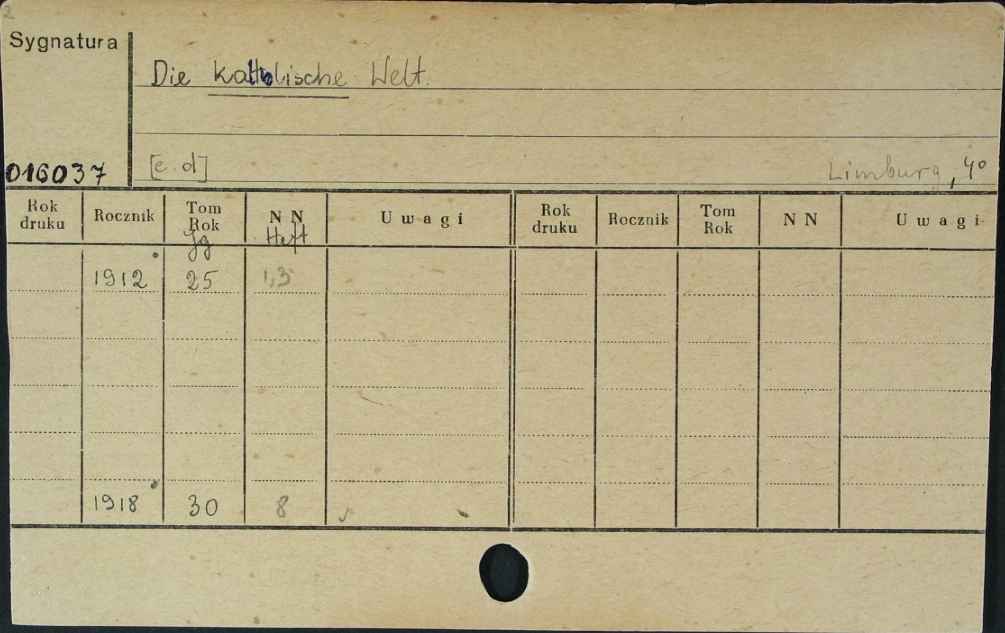 2
Sygnatura
Die katholische Welt.
016037
[e. d] Limburg, 4°
Rok druku Rocznik Tom Rok Jg N N Heft U w a g i Rok druku Rocznik Tom Rok N N U w a g i
1912 25 1,3
1918 30 8